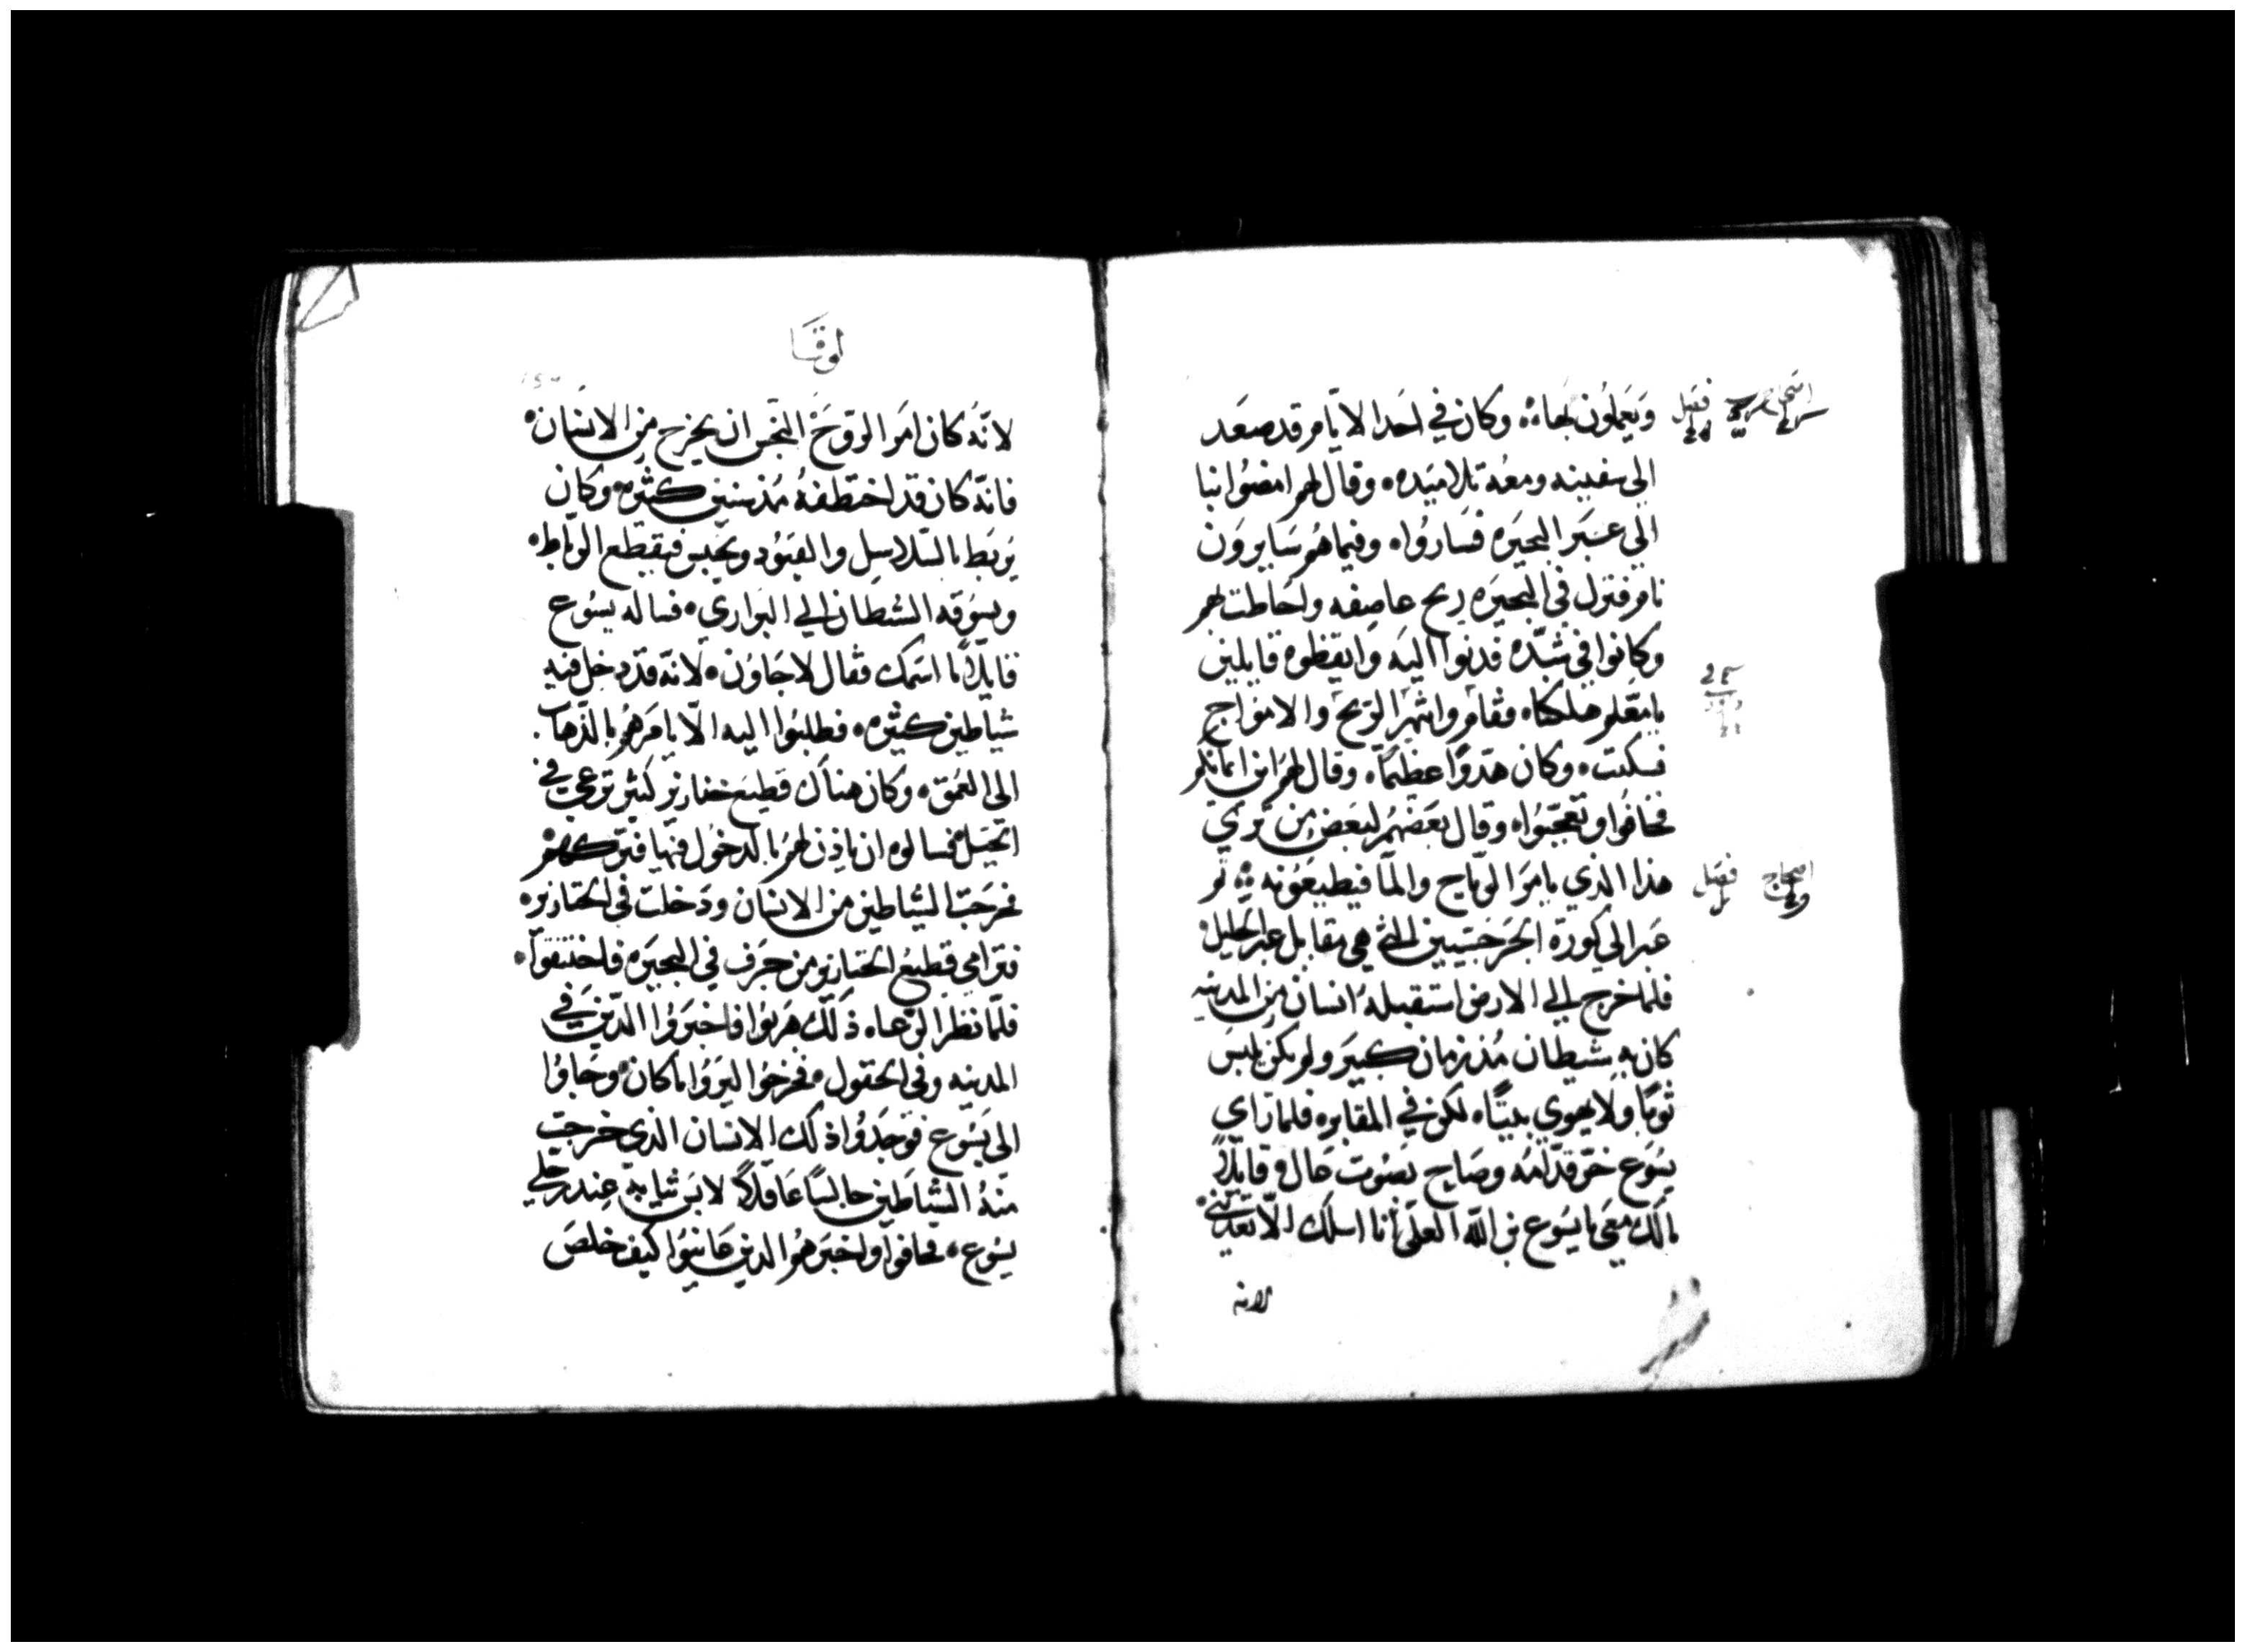 ويعملون بها۞ وكان في احد الايام قد صعد
الى سفينه ومعه تلاميده۰ وقال لهم امضوا بنا
الي عبر البحيره فساروا۰ وفيما هم سايرون
نام فنزل في البحيره ريح عاصفه واحاطت بهم
وكانوا في شده فدنوا اليه وايقظوه قايلين
يا معلم هلكنا۰ فقام وانتهر الريح والامواج
فسكتت۰ وكان هدوًا عظيمًا۰ وقال لهم اين ايمانكم
فخافوا وتعجبوا۰ وقال بعضهم لبعض من تري
هذا الذي يامر الرياح والما فيطيعونه ۞ ثم
عبر الي كورة الجرجسيين التي هي مقابل عبر الجليل
فلما خرج الي الارض استقبله انسان من المدينه
كان به شيطان مُنذ زمان كبير ولم يكن يلبس
ثوبًا ولا يهوي بيتًا۰ لكن في المقابر۰ فلما راي
يسوع خر قدامه وصاح بصوت عال۰ قايلاً
مالك معي يا يسوع بن الله العلي أنا اسلك الا تعدبني۰
لانه
فصل
اصحاح
فصل
لوقا
لانه كان امر الروح النجس ان يخرج من الانسان۰
فانه كان قد اختطفه مُذ سنين كثيره۰ وكان
يربط بالسلاسل والقيود ويحبس فيقطع الرباط۰
ويسوقه الشطان الي البراري۰ فساله يسوع
قايلاً ما اسمك فقال لاجاون۰ لانه قد دخل فيه
شياطين كثيره۰ فطلبوا اليه الا يامرهم بالذهاب
الى العمق۰ وكان هناك قطيع خنازير كثير ترعي في
الجبل۰ فسالوه ان ياذن لهم بالدخول فيها فتركهم
فخرجت الشياطين من الانسان ودخلت في الخنازير۰
فترامي قطيع الخنازير من جرف في البحيره فاختنقوا۰
فلما نظر الرعاه ذلك هربوا فاخبروا الدين في
المدينه وفي الحقول۰ فخرجوا ليروا ما كان۰ وجاوا
الى يسوع فوجدوا ذلك الانسان الذي خرجت
منه الشياطين جالسًا عاقلاً لابس ثيابه عند رجلي
يسوع۰ فخافوا واخبرهم الدين عاينوا كيف خلص